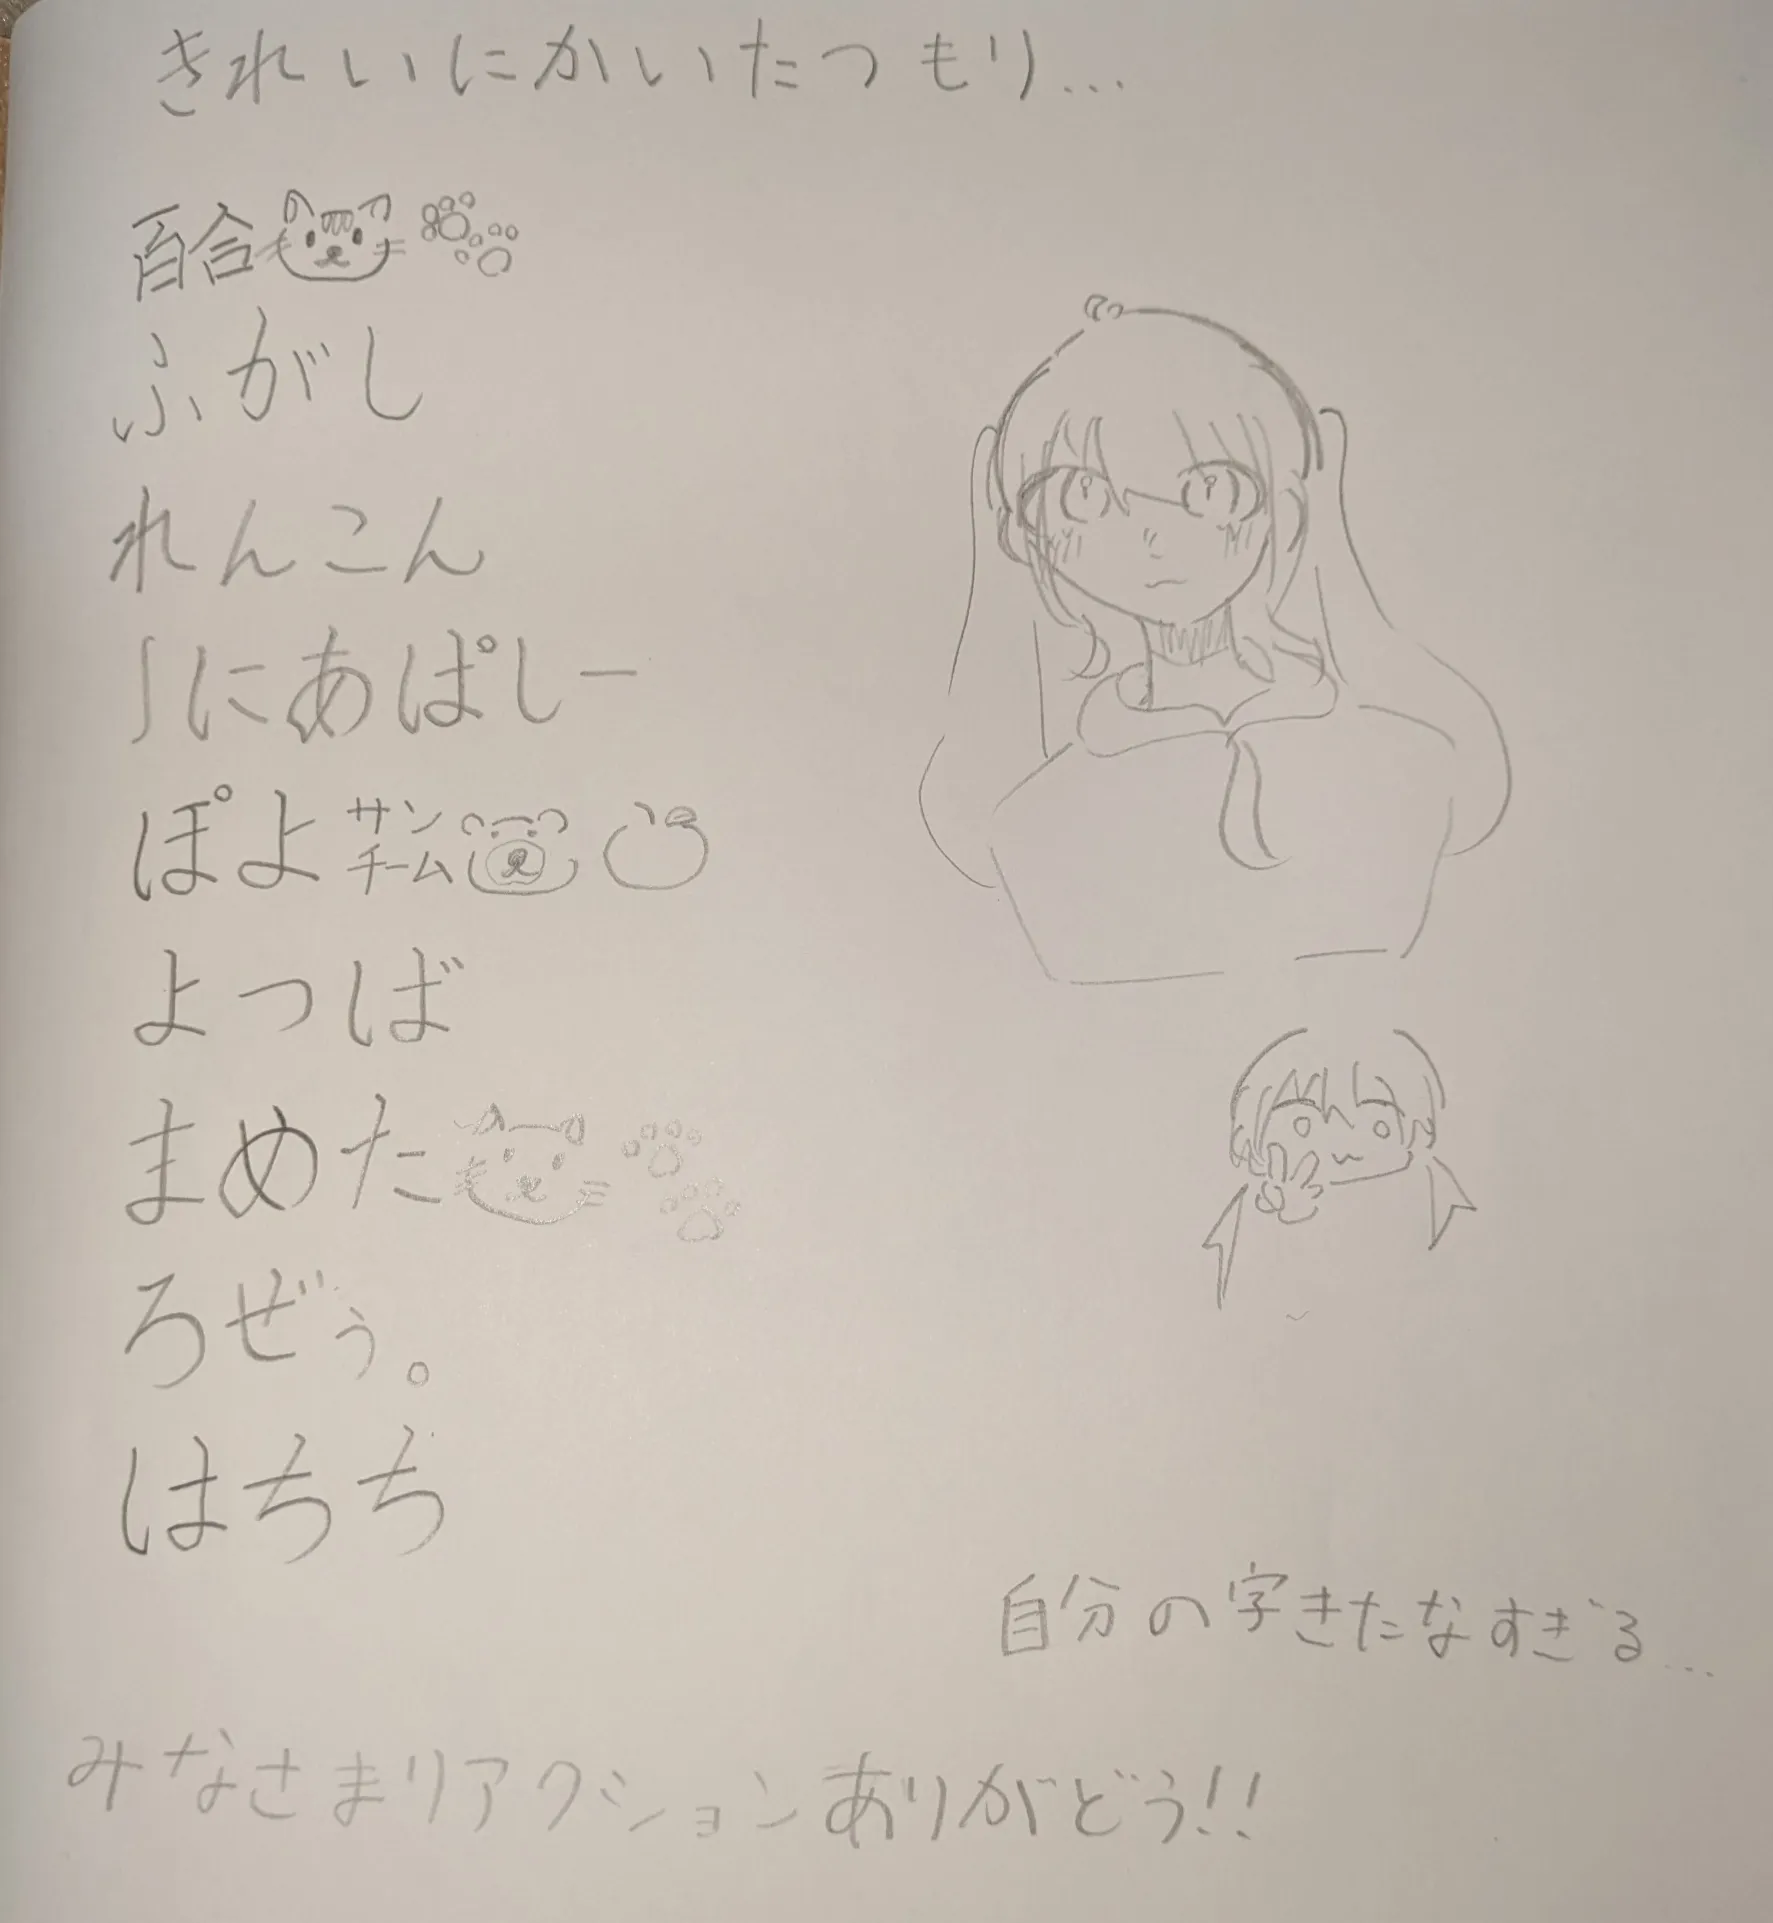 きれいにかいたつもり...
百合
ふがし
れんこん
∫にあぱしー
ぽよサンチーム
よつば
まめた
ろぜぅ。
はちち
自分の字きたなすぎる...
みなさまリアクションありがどう!!